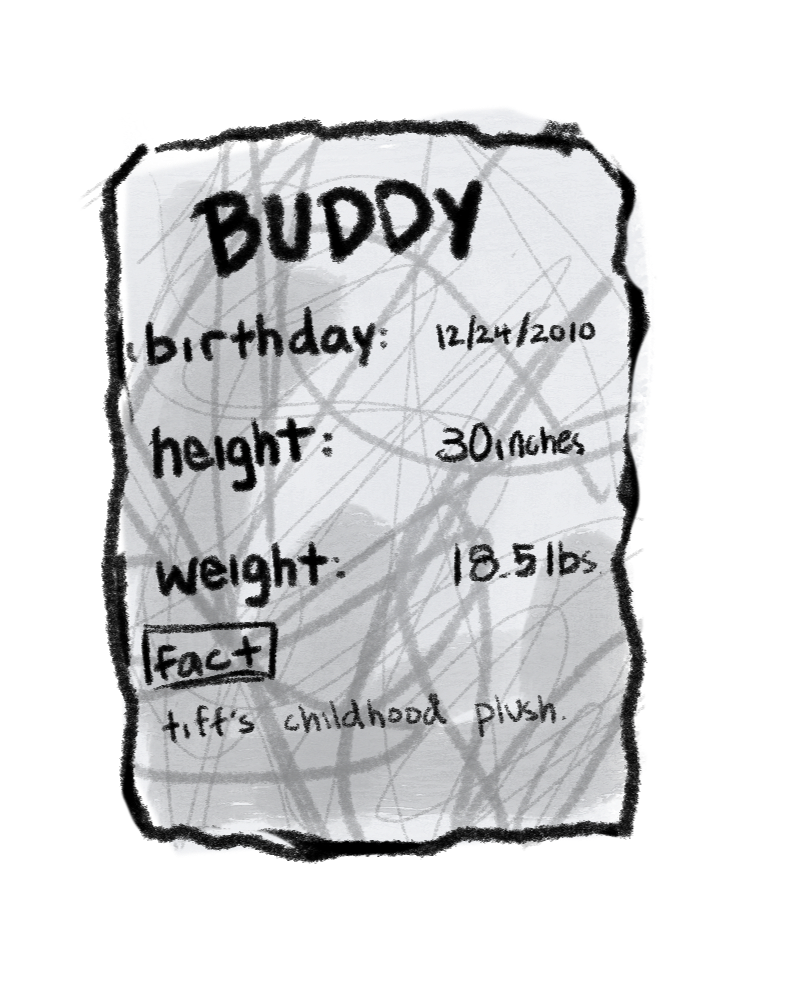 BUDDY
birthday: 12/24/2010
height: 30inches
weight: 18.5lbs
fact
tiff's childhood plush.